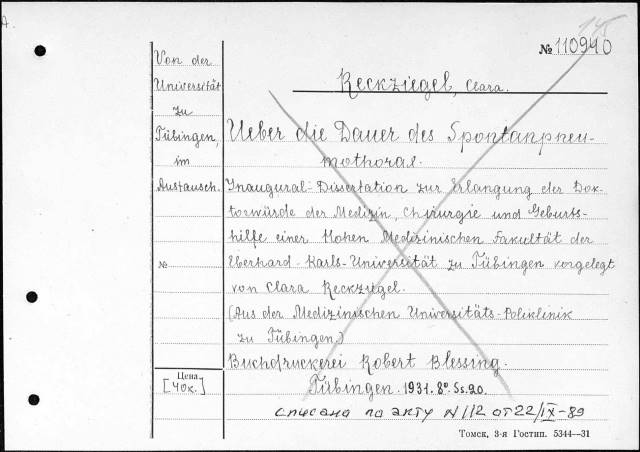 145
№ 110940
Von der
Universität
zu
Tübingen,
im
Austausch.
№
Цена
[40к.]
Reckziegel, Clara.
Ueber die Dauer des Spontanpneu-
mothorax.
Inaugural-Dissertation zur Erlangung der Dok-
torwürde der Medizin, Chirurgie und Geburts-
hilfe einer Hohen Medizinischen Fakultät der
Eberhard-Karls-Universität zu Tübingen vorgelegt
von Clara Reckziegel.
(Aus der Medizinischen Universitäts-Poliklinik
zu Tübingen.)
Buchdruckerei Robert Blessing.
Tübingen. 1931. 8°. Ss. 20.
списана по акту N 112 от 22/IX-89
Томск, 3-я Гостип. 5344—31